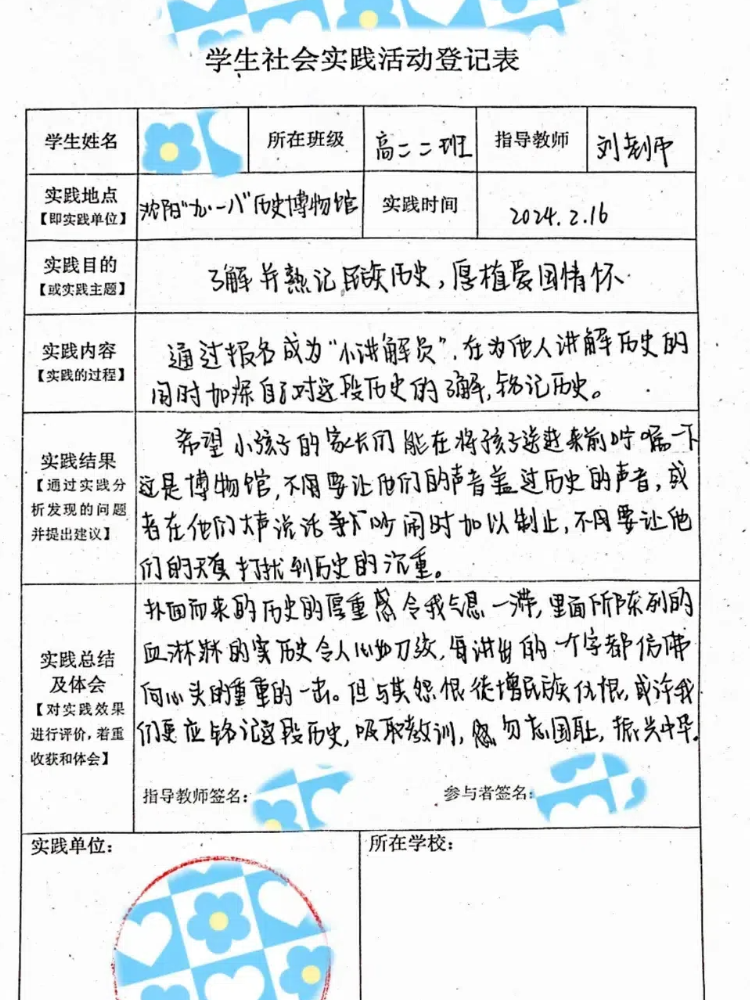 学生社会实践活动登记表
学生姓名
所在班级
高二二班
指导教师
刘老师
实践地点
【即实践单位】
沈阳“九·一八”历史博物馆
实践时间
2024.2.16
实践目的
【或实践主题】
了解并熟记民族历史，厚植爱国情怀
实践内容
【实践的过程】
通过报名成为“小讲解员”，在为他人讲解历史的
同时加深自己对这段历史的了解，铭记历史。
实践结果
【通过实践分
析发现的问题
并提出建议】
希望小孩子的家长们能在将孩子送进来前叮嘱一下
这是博物馆，不要让他们的声音盖过历史的声音，或
者在他们大声说话吵闹时加以制止，不要让他
们的天真打扰到历史的沉重。
实践总结
及体会
【对实践效果
进行评价，着重
收获和体会】
扑面而来的历史的厚重感令我气息一滞，里面所陈列的
血淋淋的实历史令人心如刀绞，每讲出的一个字都仿佛
向心头的重重的一击。但与其怨恨徒增民族仇恨，或许我
们更应铭记这段历史，吸取教训，勿忘国耻，振兴中华。
指导教师签名：
参与者签名：
实践单位：
所在学校：